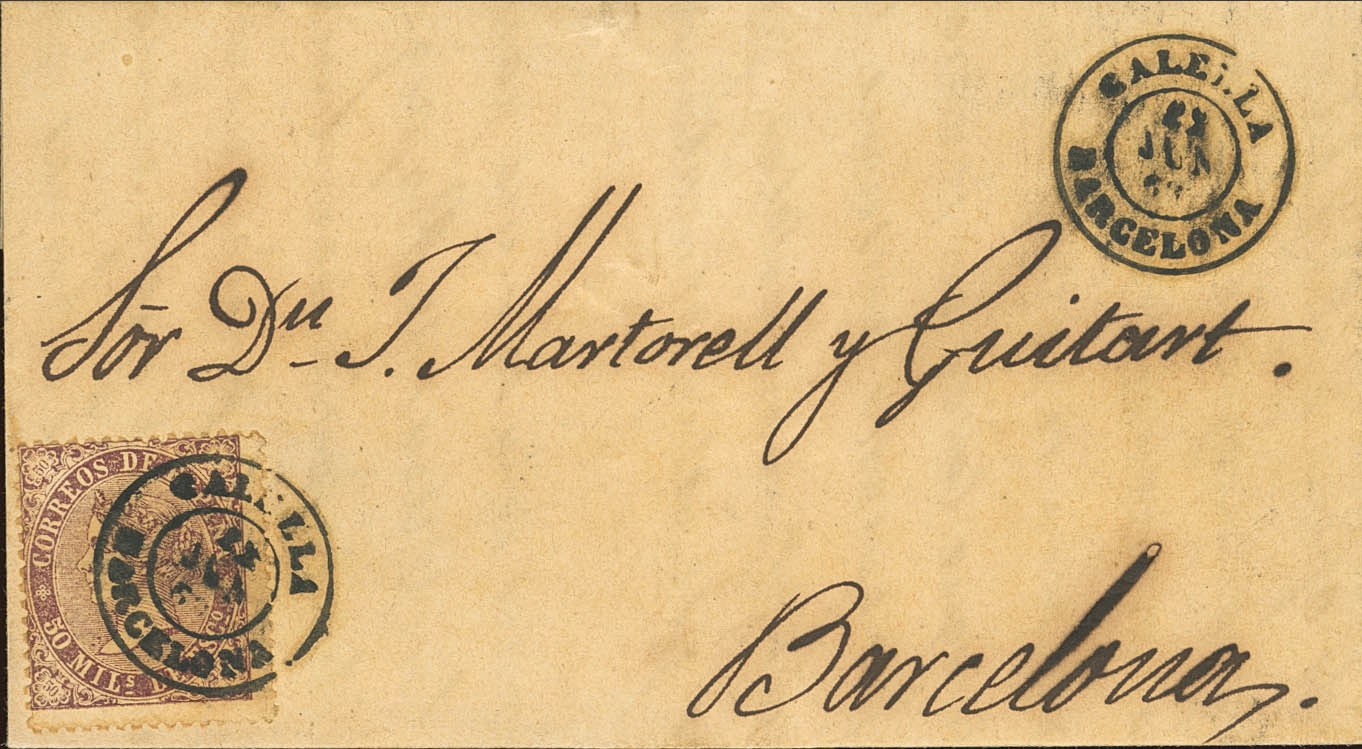 CALELLA
JUN
BARCELONA
Sōr Dn J. Martorell y Guitart.
CORREOS DE
CALELLA
BARCELONA
50 MILS
Barcelona.